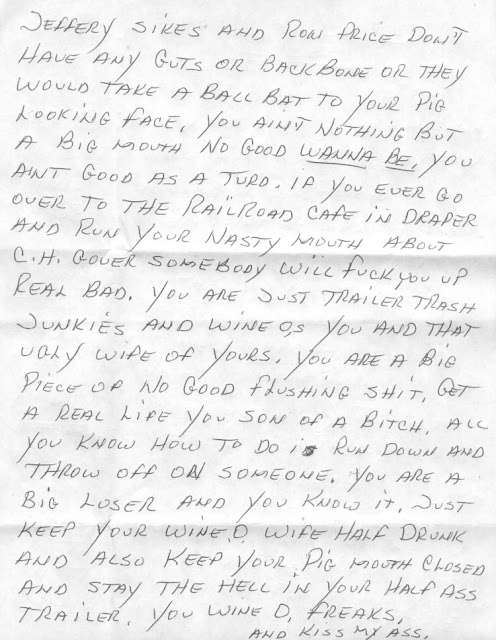 JEFFERY SIKES AND RON PRICE DON'T
HAVE ANY GUTS OR BACKBONE OR THEY
WOULD TAKE A BALL BAT TO YOUR PIG
LOOKING FACE. YOU AIN'T NOTHING BUT
A BIG MOUTH NO GOOD WANNA BE. YOU
AINT GOOD AS A TURD. IF YOU EVER GO
OVER TO THE RAILROAD CAFE IN DRAPER
AND RUN YOUR NASTY MOUTH ABOUT
C.H. GOVER SOMEBODY WILL FUCK YOU UP
REAL BAD. YOU ARE JUST TRAILER TRASH
JUNKIES AND WINE O,S YOU AND THAT
UGLY WIFE OF YOURS. YOU ARE A BIG
PIECE OF NO GOOD FLUSHING SHIT. GET
A REAL LIFE YOU SON OF A BITCH. ALL
YOU KNOW HOW TO DO IS RUN DOWN AND
THROW OFF ON SOMEONE. YOU ARE A
BIG LOSER AND YOU KNOW IT. JUST
KEEP YOUR WINE O. WIFE HALF DRUNK
AND ALSO KEEP YOUR PIG MOUTH CLOSED
AND STAY THE HELL IN YOUR HALF ASS
TRAILER. YOU WINE O. FREAKS.
AND KISS MY ASS.